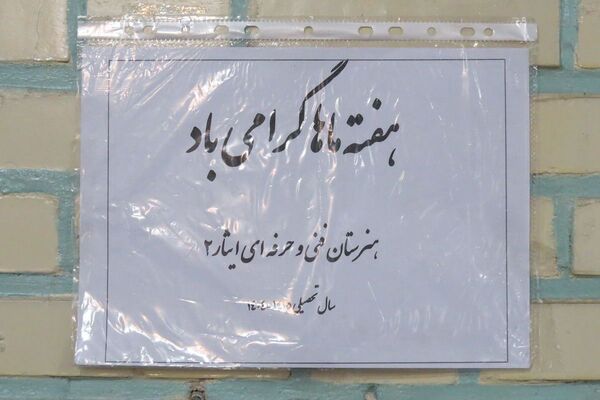 هفته ماها گرامی باد
هنرستان فنی و حرفه ای ایثار ۲
سال تحصیلی ۱۴۰۴-۱۴۰۵